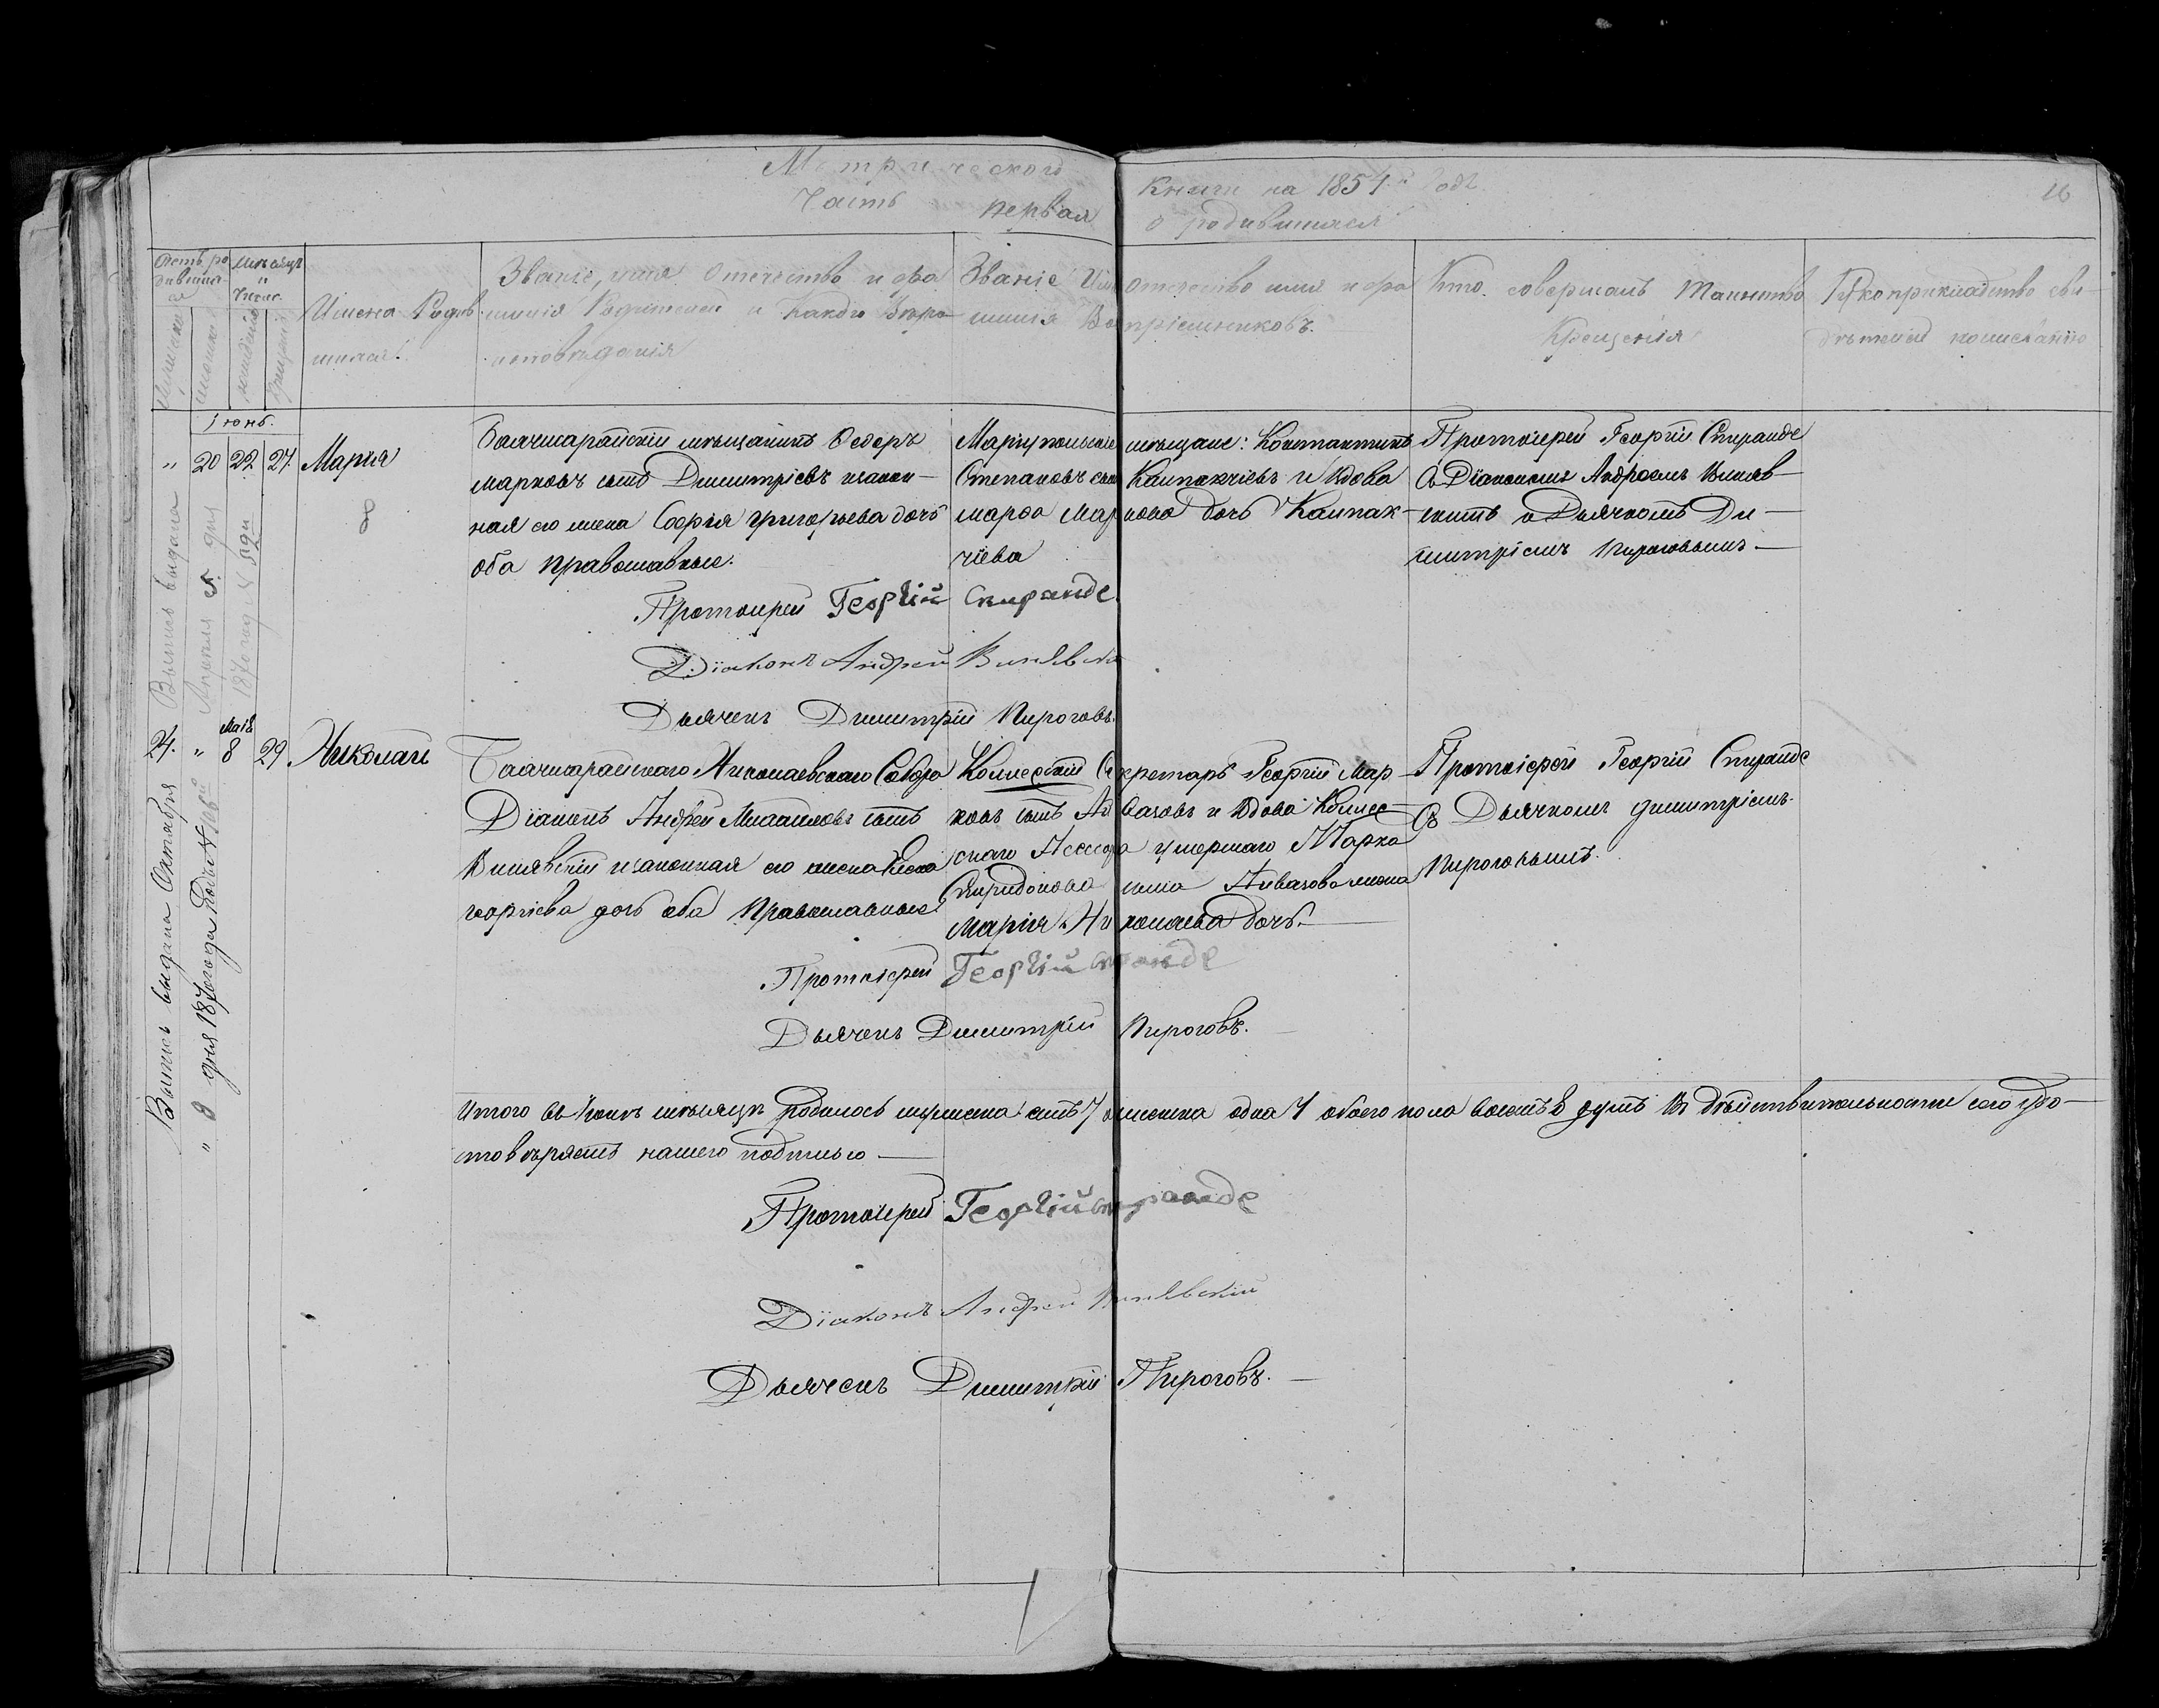 Метрической книги на 1854й годъ
Часть первая о родившихся
16
Счетъ родившихся
Мѣсяцъ и число.
Имена Родив-
шихся.
Званіе, имя отечество и фа-
милія Родителей и какого вѣро-
исповѣданія
Званіе Имя отечество и фа-
милія Воспріемниковъ.
Кто совершалъ таинство
Крещенія
Рукоприкладство сви-
дѣтелей
Женска
рожденія
Крещенія
Іюнь.
" 20 22 27. Марія
Бахчисарайскій мѣщанинъ Ѳедоръ
Марковъ сынъ Димитріевъ и закон-
ная его жена Софія Григорьева дочь
оба православные.
Маріупольские мѣщане: Константинъ
Степановъ сынъ Калпакчіевъ и Вдова
Марѳа Маркова дочь Калпак-
чіева
Протоіерей Георгій Спиранде
съ Діакономъ Андреемъ Виняв-
скимъ и Дьячкомъ Ди-
митріемъ Пироговымъ.
Протоіерей Георгій Спиранде.
Діаконъ Андрей Винявскі
Дьячекъ Димитрій Пироговъ.
Выпись выдана
Апрѣля 5. дня
187 года
Маія
24. " 8 29. Николай
Бахчисарайскаго Николаевскаго Собора
Діаконъ Андрей Михаиловъ сынъ
Винявскій и законная его жена Елена
Георгіева дочь оба Православные.
Колежскій Секретарь Георгій Мар-
ковъ сынъ Айвазовъ и Вдова Колеж-
скаго Асесора умершаго Марка
Спиридонова сына Айвазова жена
Марія Николаева дочь.
Протоіерей Георгій Спиранде
Съ Дьячкомъ Димитріемъ
Пироговымъ.
Протоіерей Георгій Спиранде
Дьячекъ Димитрій Пироговъ.
Выпись выдана Октября
" 8 дня 187 года подъ №
Итого въ Іюнѣ мѣсяцѣ родилось мужеска семь 7 женска одна 1 обоего пола восемь 8 душъ въ дѣйствительности сего удо-
стовѣряемъ нашею подписью
Протоіерей Георгій Спиранде
Діаконъ Андрей Винявскій
Дьячекъ Димитрій Пироговъ.